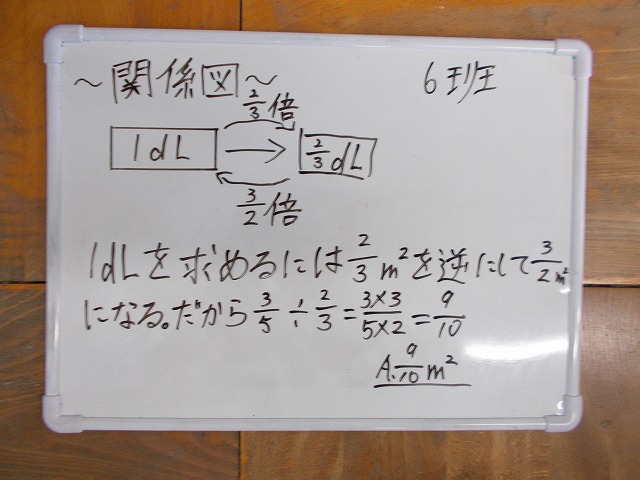 ～関係図～ 6班
2/3倍
1dL → 2/3dL
3/2倍
1dLを求めるには2/3m²を逆にして3/2m²
になる。だから3/5÷2/3=3×3/5×2=9/10
A.9/10m²